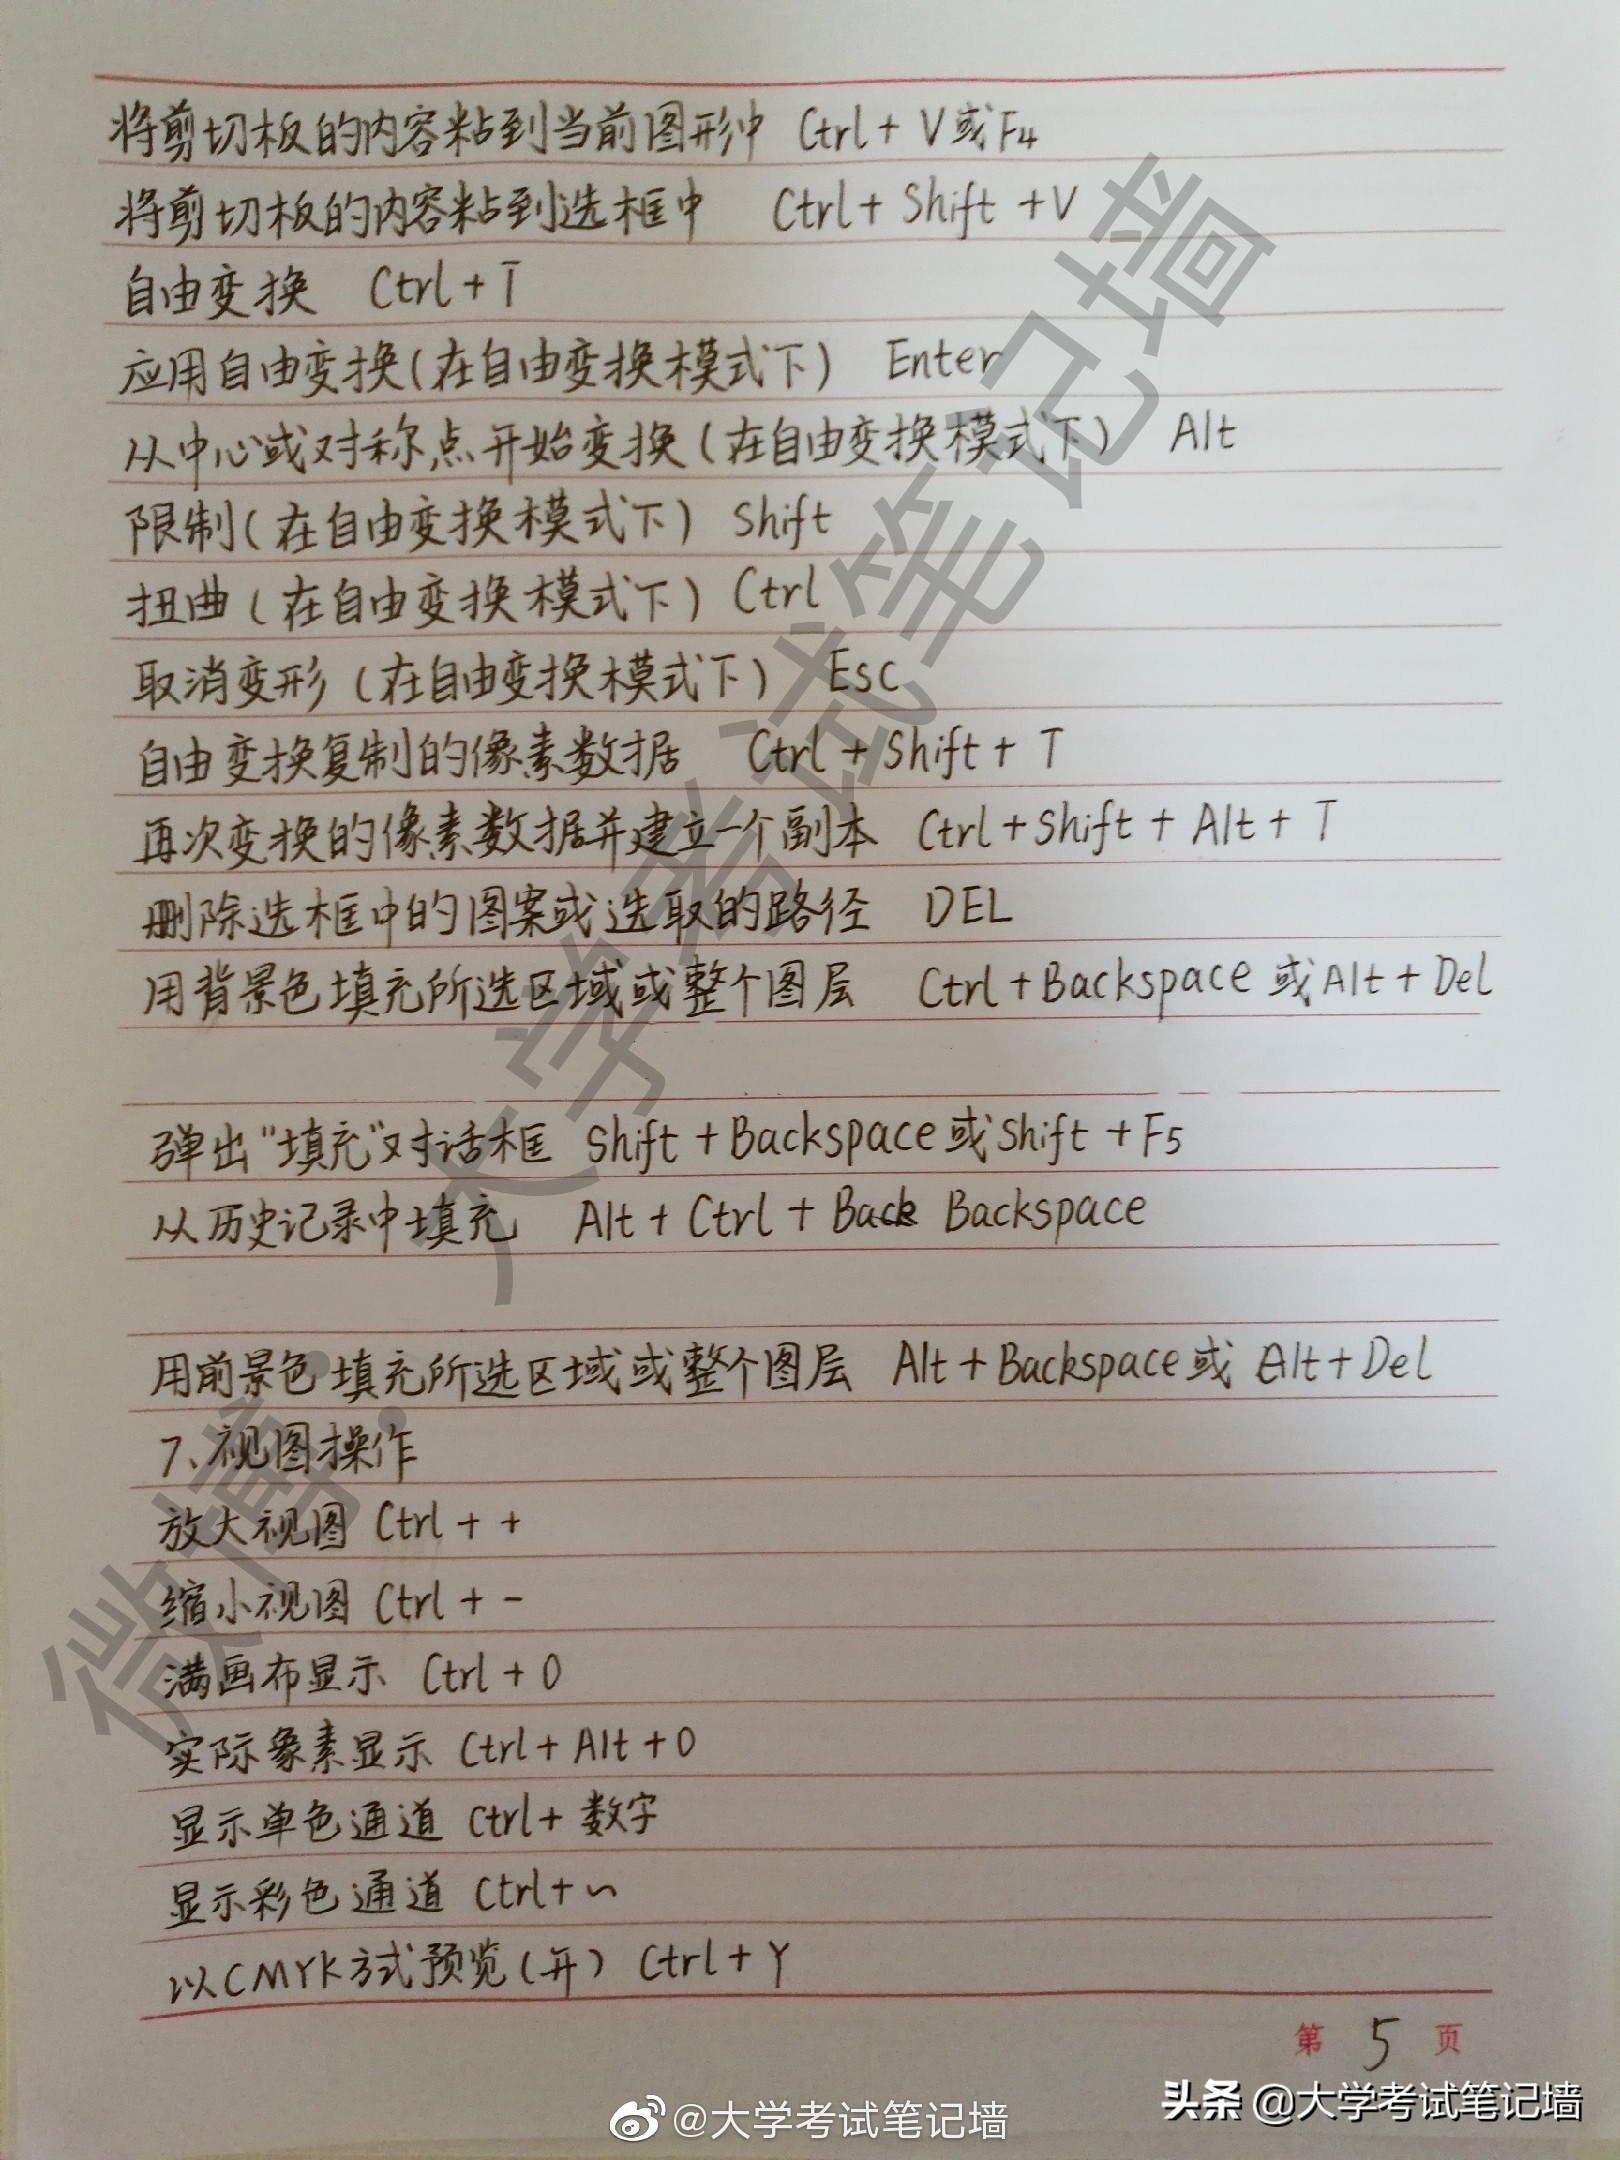 将剪切板的内容粘到当前图形中 Ctrl + V或F4
将剪切板的内容粘到选框中 Ctrl + Shift + V
自由变换 Ctrl + T
应用自由变换(在自由变换模式下) Enter
从中心或对称点开始变换(在自由变换模式下) Alt
限制(在自由变换模式下) Shift
扭曲(在自由变换模式下) Ctrl
取消变形(在自由变换模式下) Esc
自由变换复制的像素数据 Ctrl + Shift + T
再次变换的像素数据并建立一个副本 Ctrl + Shift + Alt + T
删除选框中的图案或选取的路径 DEL
用背景色填充所选区域或整个图层 Ctrl + Backspace 或 Alt + Del
弹出"填充"对话框 Shift + Backspace 或 Shift + F5
从历史记录中填充 Alt + Ctrl + Back Backspace
用前景色填充所选区域或整个图层 Alt + Backspace 或 Alt + Del
7、视图操作
放大视图 Ctrl + +
缩小视图 Ctrl + -
满画布显示 Ctrl + 0
实际象素显示 Ctrl + Alt + 0
显示单色通道 Ctrl + 数字
显示彩色通道 Ctrl + ~
以CMYK方式预览(开) Ctrl + Y
第 5 页
微博:大学考试笔记墙
@大学考试笔记墙
头条 @大学考试笔记墙